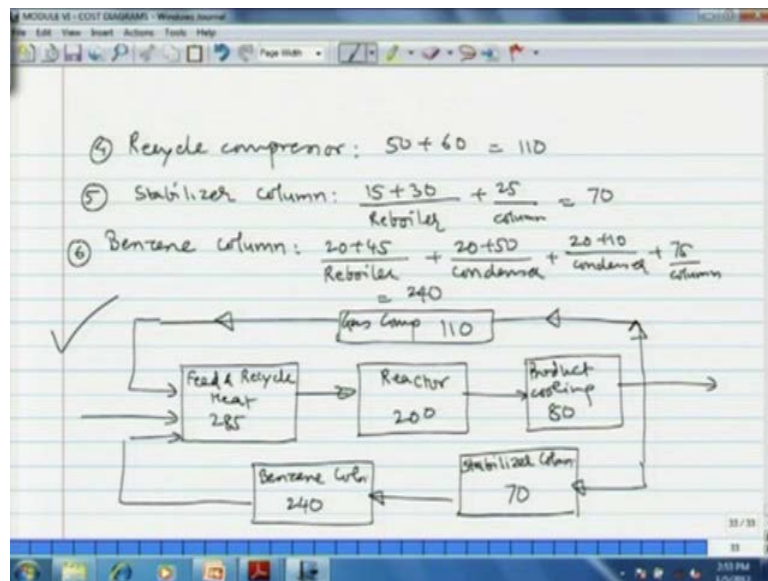 MODULE VI - COST DIAGRAMS - Windows Journal
File Edit View Insert Actions Tools Help
Page Width
④ Recycle compressor: 50 + 60 = 110
⑤ Stabilizer column: 15 + 30 / Reboiler + 25 / column = 70
⑥ Benzene column: 20 + 45 / Reboiler + 20 + 50 / condenser + 20 + 10 / condenser + 75 / column
= 240
Gas Comp 110
Feed & Recycle Heat 285
Reactor 200
Product cooling 80
Benzene Coln 240
Stabilizer Column 70
33 / 33
33
2:53 PM